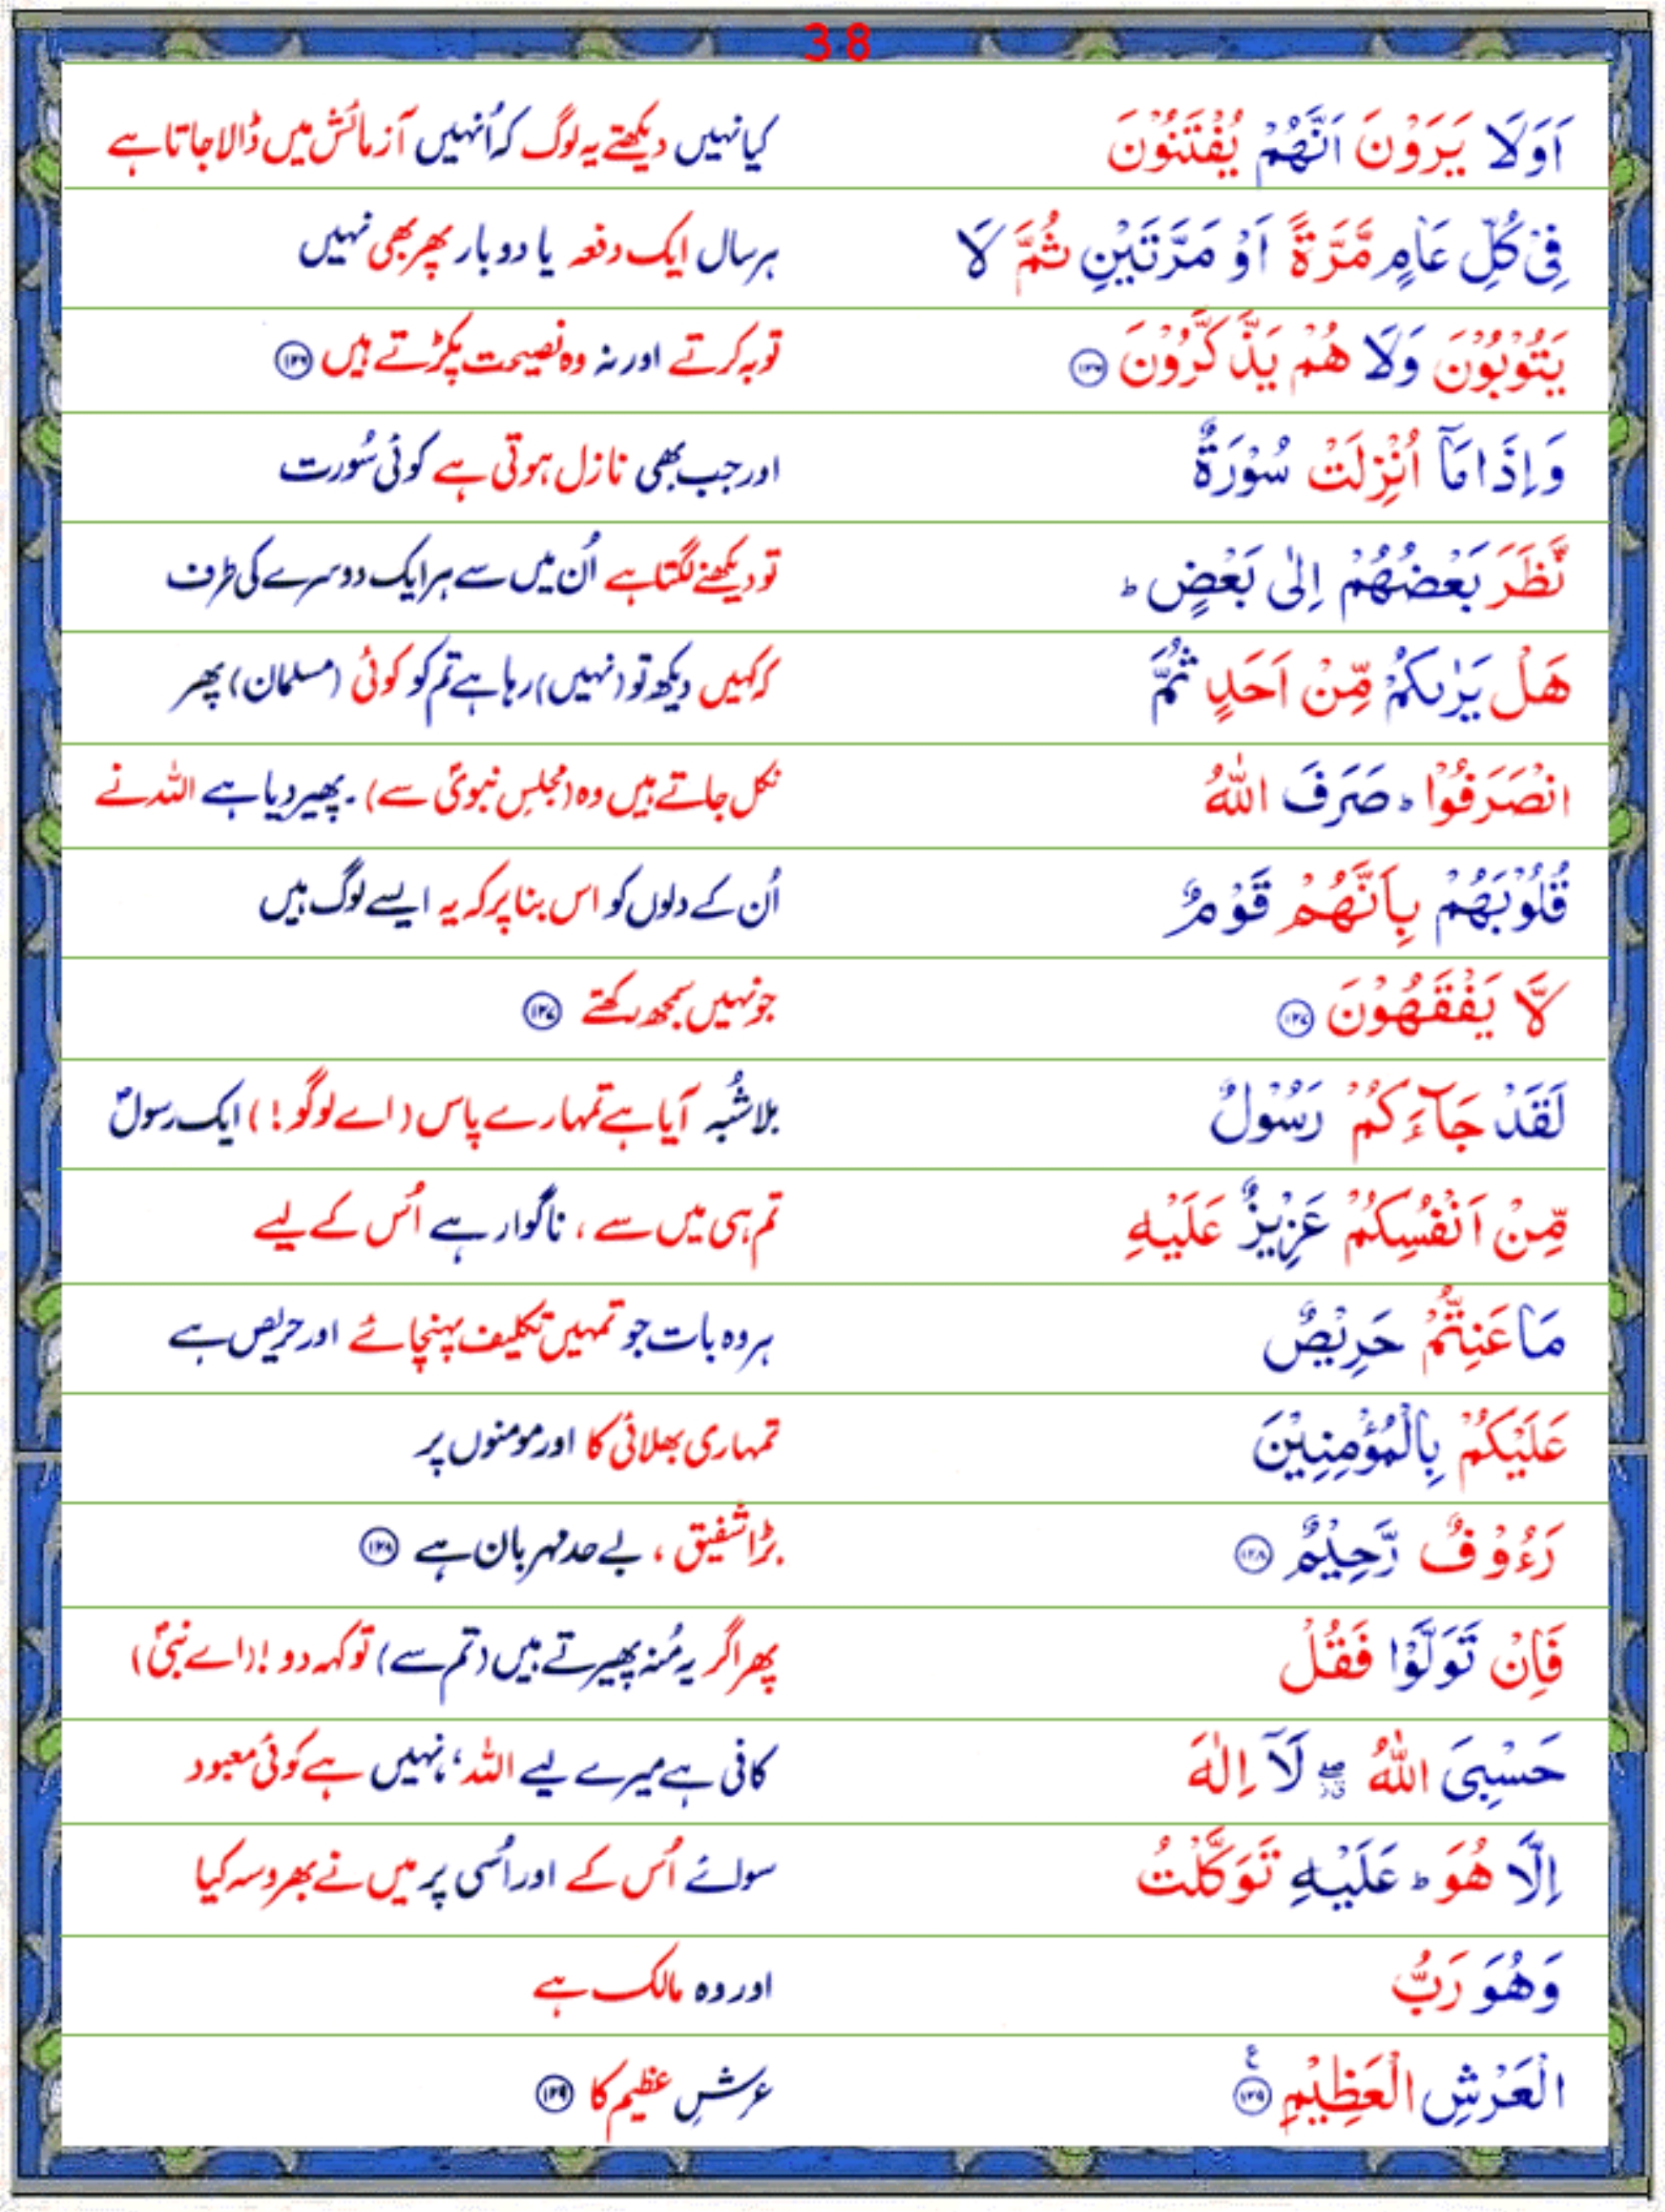 38
اَوَلَا يَرَوْنَ اَنَّهُمْ يُفْتَنُوْنَ کیا نہیں دیکھتے یہ لوگ کہ اُنہیں آزمائش میں ڈالا جاتا ہے
فِىْ كُلِّ عَامٍ مَّرَّةً اَوْ مَرَّتَيْنِ ثُمَّ لَا ہر سال ایک دفعہ یا دو بار پھر بھی نہیں
يَتُوْبُوْنَ وَلَا هُمْ يَذَّكَّرُوْنَ ۱۲۶ توبہ کرتے اور نہ وہ نصیحت پکڑتے ہیں ۱۲۶
وَاِذَا مَآ اُنْزِلَتْ سُوْرَةٌ اور جب بھی نازل ہوتی ہے کوئی سُورت
نَّظَرَ بَعْضُهُمْ اِلٰى بَعْضٍ ؕ تو دیکھنے لگتا ہے اُن میں سے ہر ایک دوسرے کی طرف
هَلْ يَرٰىكُمْ مِّنْ اَحَدٍ ثُمَّ کہ کہیں دیکھ تو (نہیں) رہا ہے تم کو کوئی (مسلمان) پھر
انْصَرَفُوْا ؕ صَرَفَ اللّٰهُ نکل جاتے ہیں وہ (مجلسِ نبویؐ سے)۔ پھیر دیا ہے اللہ نے
قُلُوْبَهُمْ بِاَنَّهُمْ قَوْمٌ اُن کے دلوں کو اس بنا پر کہ یہ ایسے لوگ ہیں
لَّا يَفْقَهُوْنَ ۱۲۷ جو نہیں سمجھ رکھتے ۱۲۷
لَقَدْ جَآءَكُمْ رَسُوْلٌ بلا شُبہ آیا ہے تمہارے پاس (اے لوگو!) ایک رسولؐ
مِّنْ اَنْفُسِكُمْ عَزِيْزٌ عَلَيْهِ تم ہی میں سے ، ناگوار ہے اُس کے لیے
مَا عَنِتُّمْ حَرِيْصٌ ہر وہ بات جو تمہیں تکلیف پہنچائے اور حریص ہے
عَلَيْكُمْ بِالْمُؤْمِنِيْنَ تمہاری بھلائی کا اور مومنوں پر
رَءُوْفٌ رَّحِيْمٌ ۱۲۸ بڑا شفیق ، بے حد مہربان ہے ۱۲۸
فَاِنْ تَوَلَّوْا فَقُلْ پھر اگر یہ مُنہ پھیرتے ہیں (تم سے) تو کہہ دو ! (اے نبیؐ)
حَسْبِىَ اللّٰهُ ۖ لَآ اِلٰهَ کافی ہے میرے لیے اللہ ، نہیں ہے کوئی معبود
اِلَّا هُوَ ؕ عَلَيْهِ تَوَكَّلْتُ سوائے اُس کے اور اُسی پر میں نے بھروسہ کیا
وَهُوَ رَبُّ اور وہ مالک ہے
الْعَرْشِ الْعَظِيْمِ ۱۲۹ ع عرشِ عظیم کا ۱۲۹